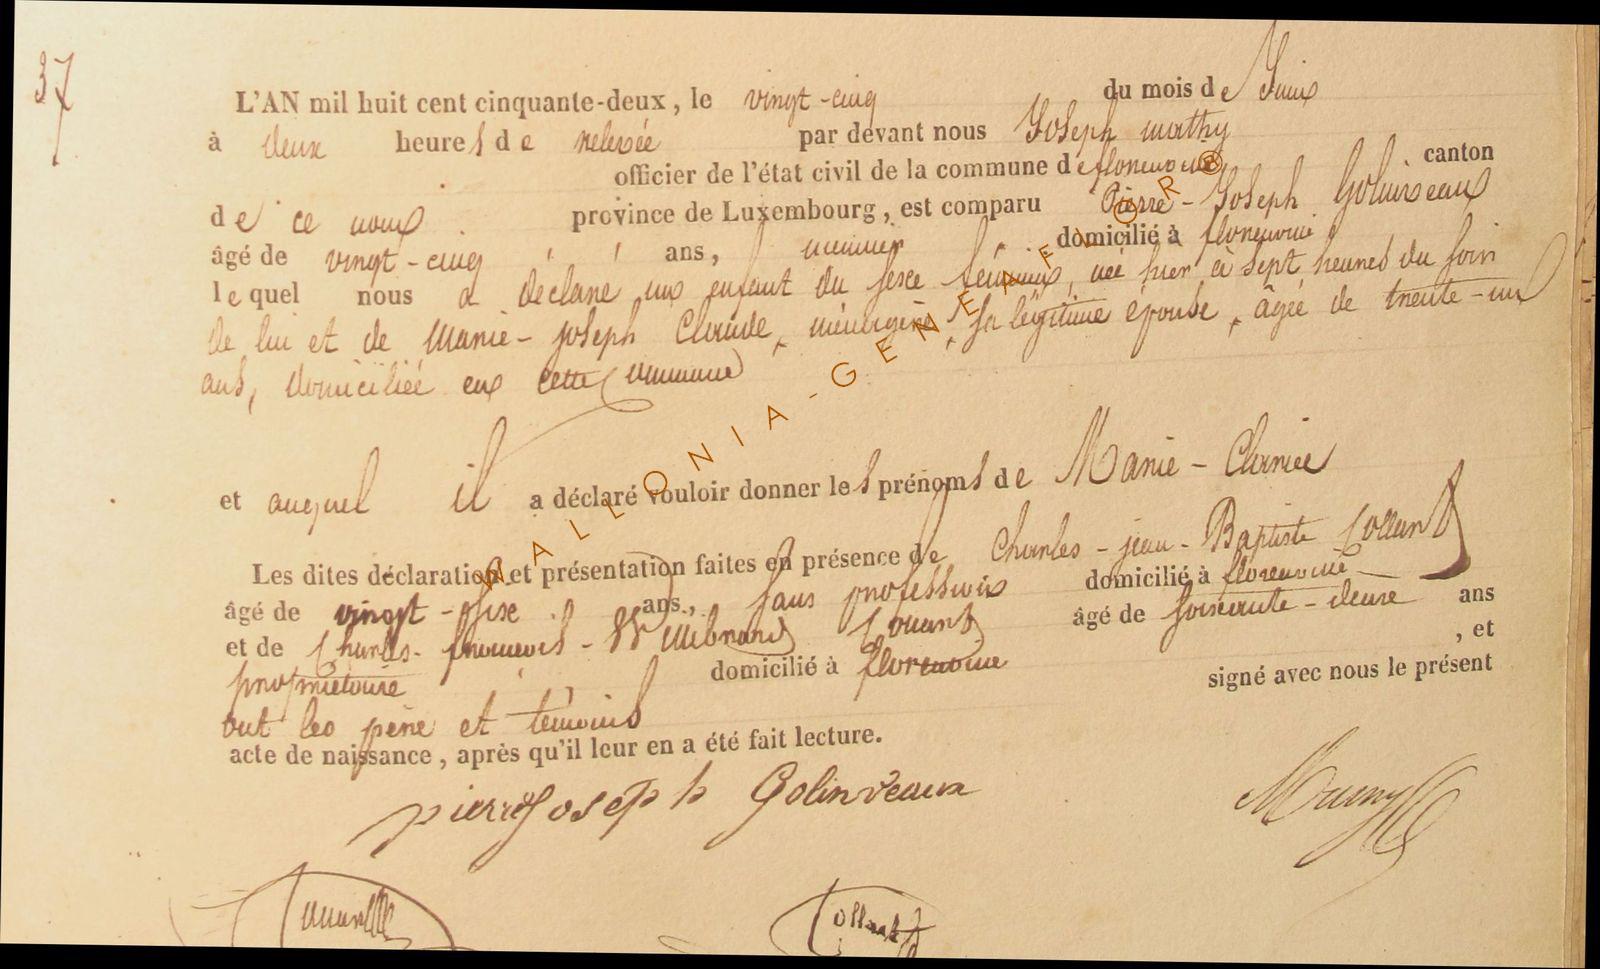 37
L'AN mil huit cent cinquante-deux, le vingt-cinq du mois de Juin
à deux heures de relevée par devant nous Joseph mathy
officier de l'état civil de la commune de florenville canton
de ce nom province de Luxembourg, est comparu Pierre-Joseph Golinveaux
âgé de vingt-cinq ans, domicilié à florenville
lequel nous a déclaré un enfant du sexe féminin, née hier à sept heures du soir
de lui et de Marie-joseph Claude, ménagère, sa légitime épouse, âgée de trente-un
ans, domiciliée en cette Commune
et auquel il a déclaré vouloir donner les prénoms de Marie-
Les dites déclaration et présentation faites en présence de Charles-jean-Baptiste Collard
âgé de vingt-six ans, sans profession domicilié à florenville
et de Charles-françois-Willibrord âgé de soixante-deux ans
propriétaire domicilié à florenville, et
ont les père et témoins signé avec nous le présent
acte de naissance, après qu'il leur en a été fait lecture.
pierre Joseph Golinveaux
Collard
WALLONIA-GENEAFLOR®